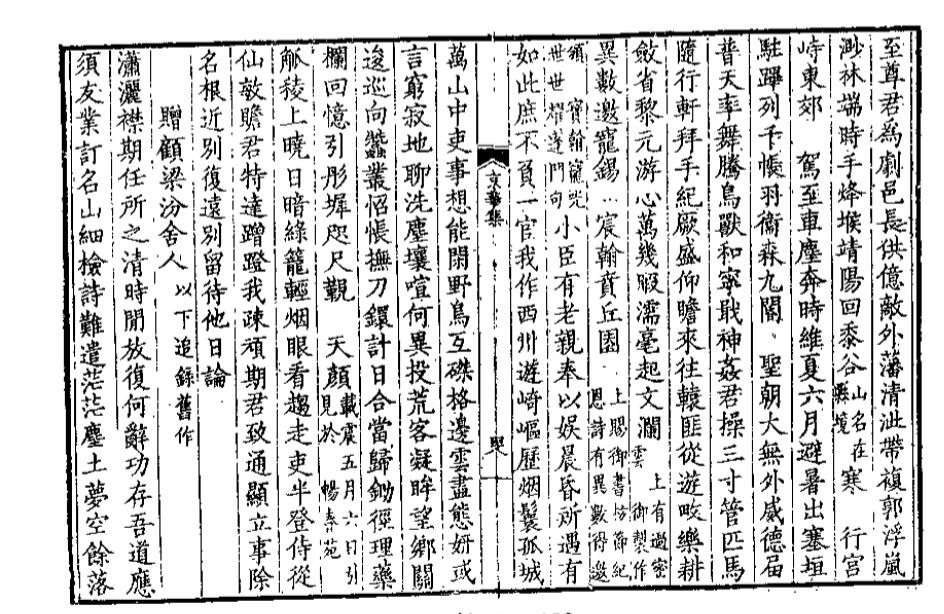 至尊君為劇邑長供億敵外藩清沘帶複郭浮嵐
渺林端時手烽堠靖陽回黍谷山名在縣境寒 行宮
峙東郊 駕至車塵奔時維夏六月避暑出塞垣
駐蹕列千帳羽衛森九閽 聖朝大無外威德届
普天率舞騰鳥獸和寧戢神姦君操三寸管匹馬
隨行軒拜手紀厥盛仰瞻來往轅匪從遊畋樂耕
斂省黎元游心萬幾暇濡毫起文瀾 上有過密雲御製作
異數邀寵錫 宸翰賁丘園 上賜御書坊節紀恩詩有異數得邀
頒 寶翰寵光世世燿蓬門句 小臣有老親奉以娛晨昏所遇有
如此庶不負一官我作西州遊崎嶇歷烟鬟孤城
文華集
萬山中吏事想能閑野鳥互磔格邊雲盡態妍或
言窮寂地聊洗塵壤喧何異投荒客凝眸望鄉關
逡巡向蠶叢怊悵撫刀鐶計日合當歸鋤徑理藥
欄回憶引彤墀咫尺覲 天顏載震五月六日引見於 暢春苑
觚稜上曉日暗綠籠輕烟眼看趨走吏半登侍從
仙敏贍君特達蹭蹬我疎頑期君致通顯立事除
名根近別復遠別留待他日論
贈顧梁汾舍人以下追錄舊作
瀟灑襟期任所之清時閒放復何辭功存吾道應
須友業訂名山細檢詩難遣茫茫塵土夢空餘落